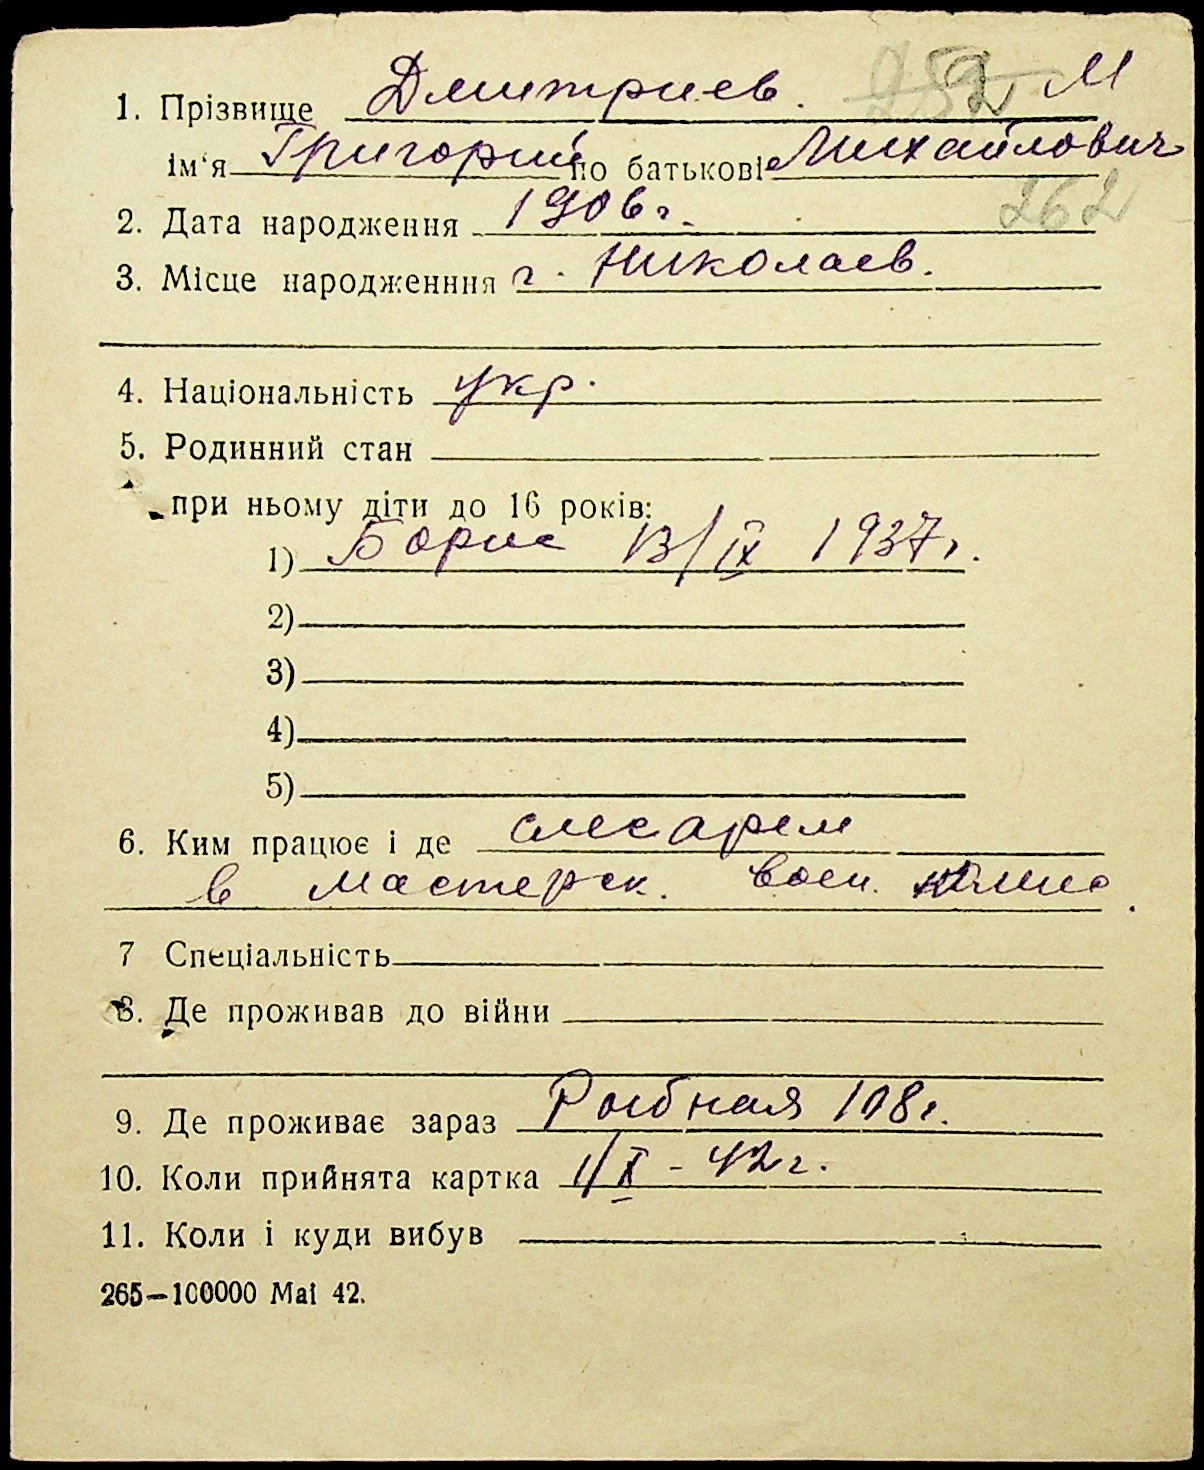 1. Прізвище Дмитриев. М
ім‘я Григорий по батькові Михайлович
2. Дата народження 1906 г.
262
3. Місце народженння г. Николаев.
4. Національність укр.
5. Родинний стан
при ньому діти до 16 років:
1) Борис 13/IX 1937 г.
2)
3)
4)
5)
6. Ким працює і де слесарем
в мастерск. воен.
7 Спеціальність
8. Де проживав до війни
9. Де проживає зараз Рыбная 108 г.
10. Коли прийнята картка 1/X - 42 г.
11. Коли і куди вибув
265—100000 Mai 42.